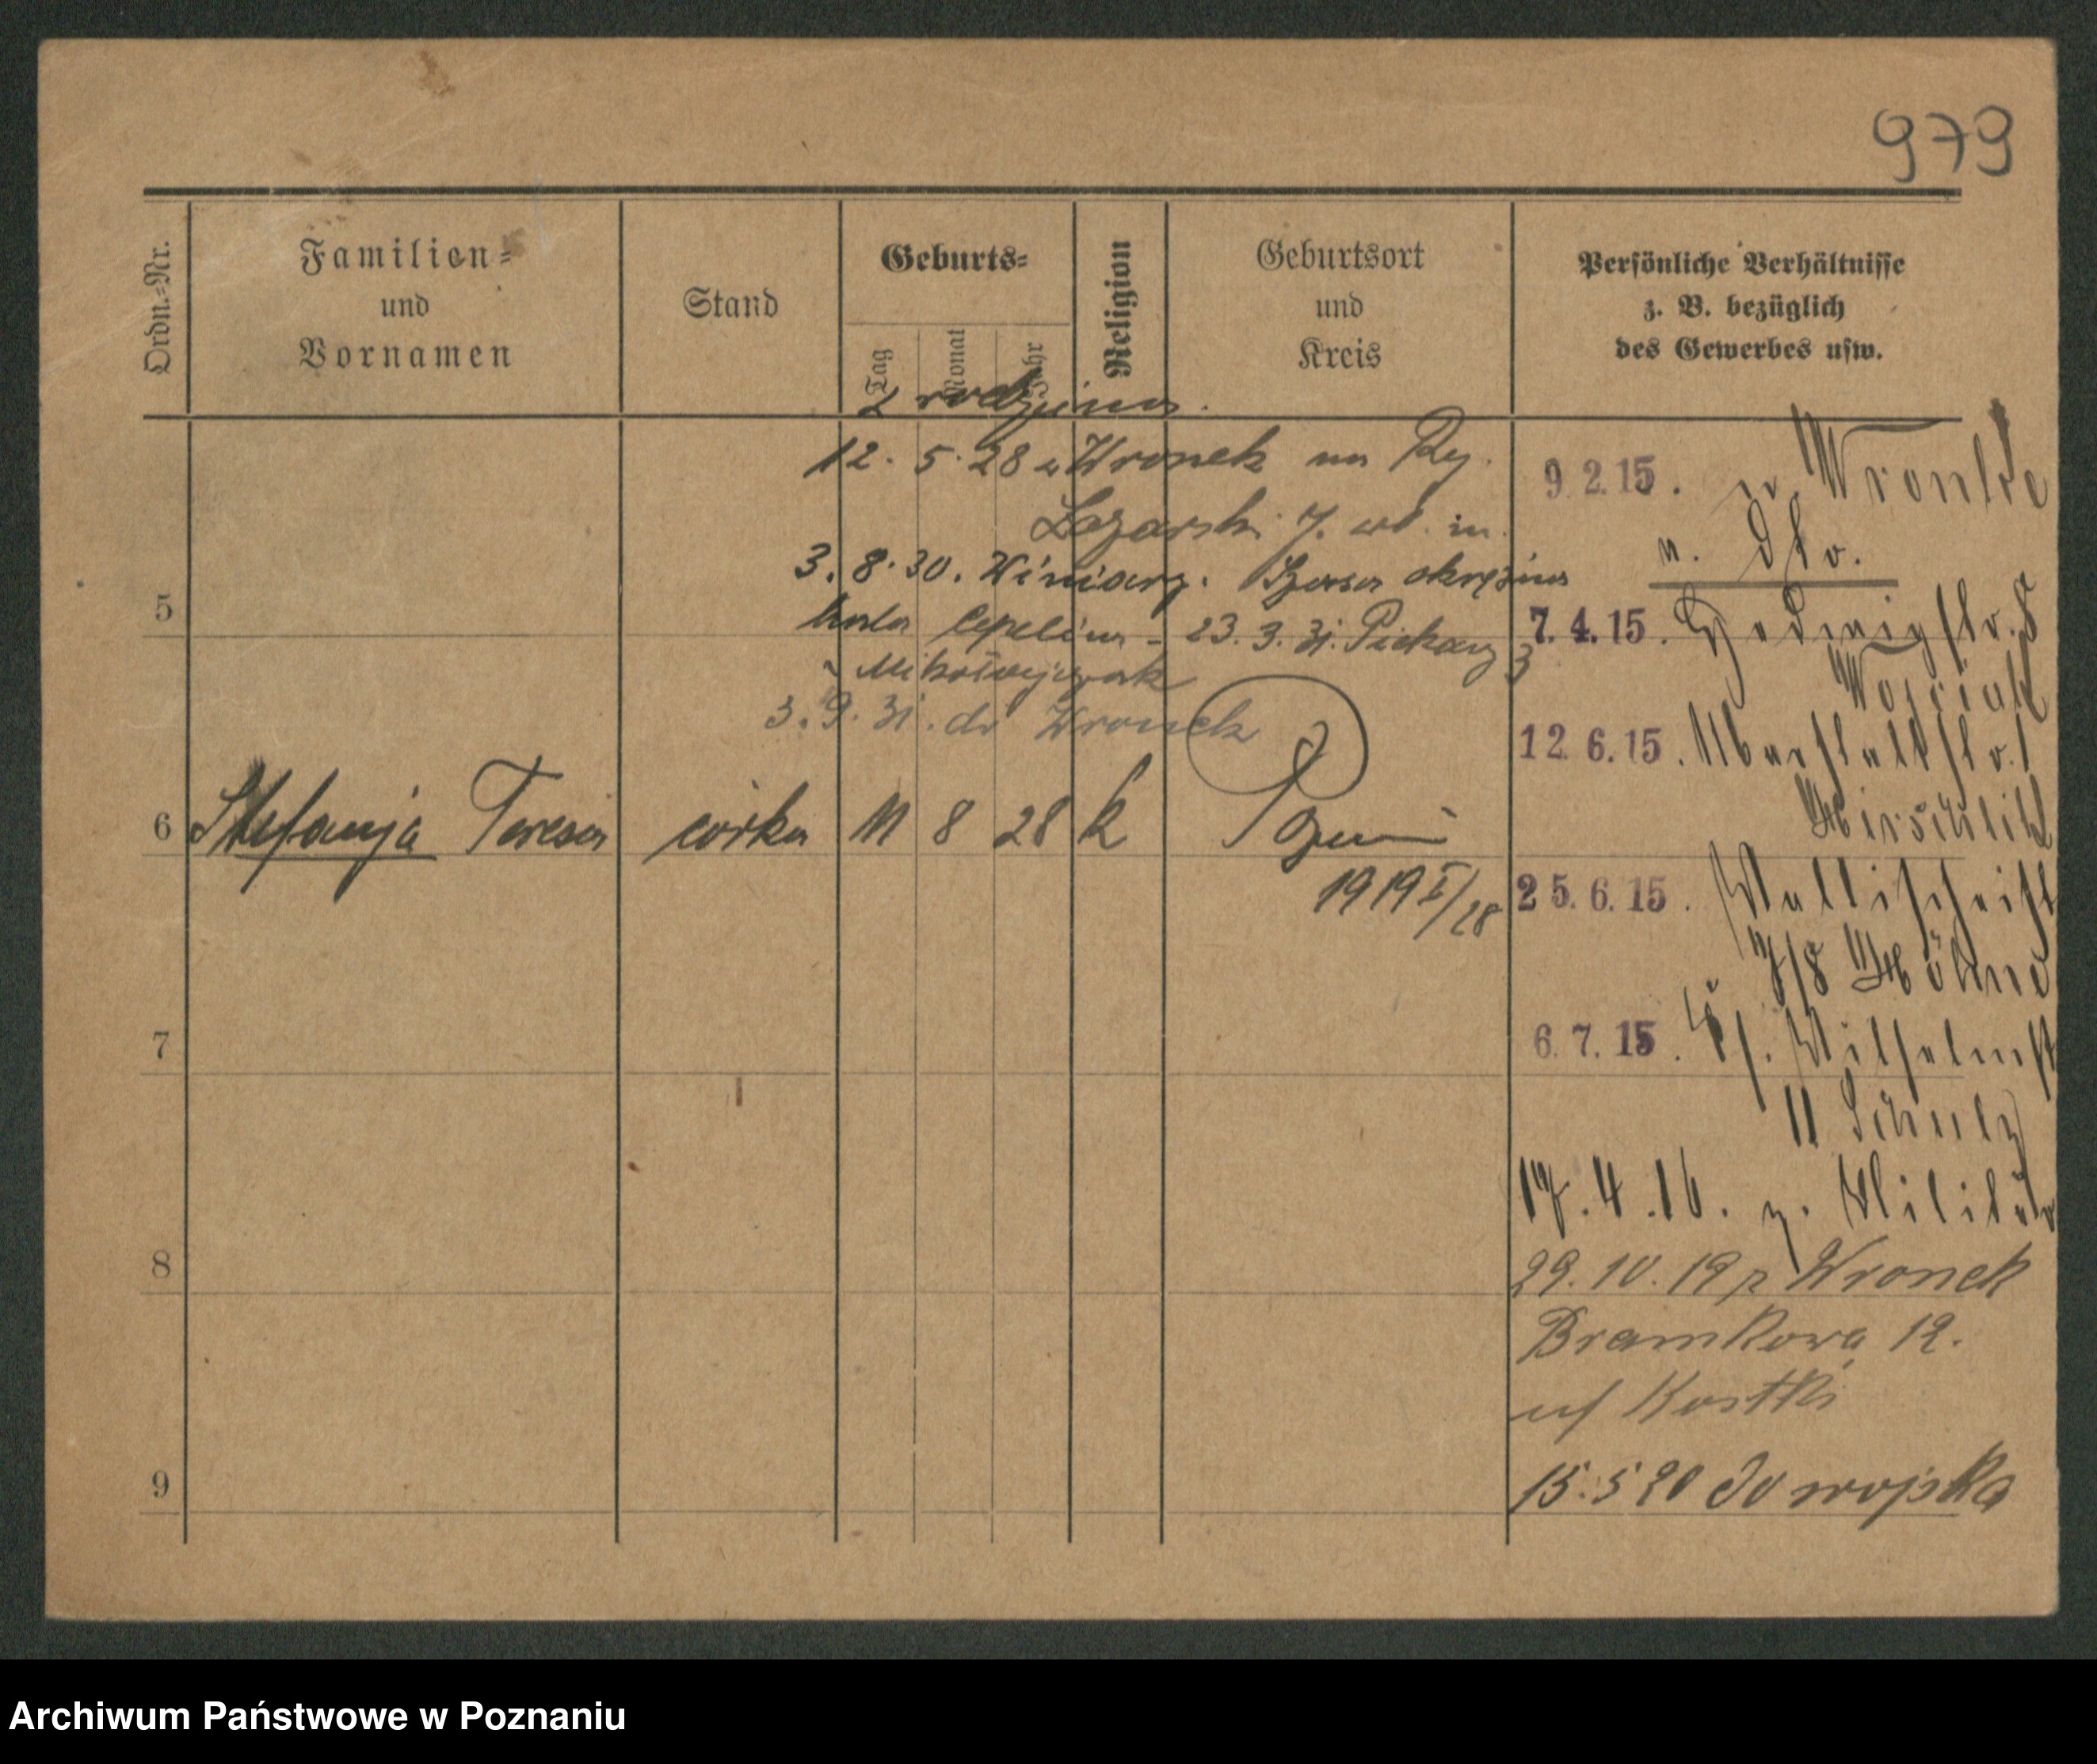 979
Ordn.-Nr.
Familien-
und
Vornamen
Stand
Geburts-
Tag
Monat
Jahr
Religion
Geburtsort
und
Kreis
Persönliche Verhältnisse
z. B. bezüglich
des Gewerbes usw.
z rodziną.
12. 5. 28 z Wronek na Ry.
Łazarski 7.
3. 8. 30. Winiary. Szosa okrężna
hala
23. 3. 31. Piekary 3
Mikołajczak
3. 9. 31. do Wronek
5
6 Stefanja Teresa córka 11 8 28 k Pozn
1919 I/28
7
8
9
9. 2. 15. v. Wronke
n. dto.
7. 4. 15. Hedwigstr. 8
Woziak
12. 6. 15.
25. 6. 15. Wallischeistr
7/8 Höhne
6. 7. 15. Wilhelmstr
11 Schulz
17. 4. 16. z. Militär
29. 10. 19 z Wronek
Bramkowa 12.
u/ Kostki
15. 5 20 do wojska
Archiwum Państwowe w Poznaniu